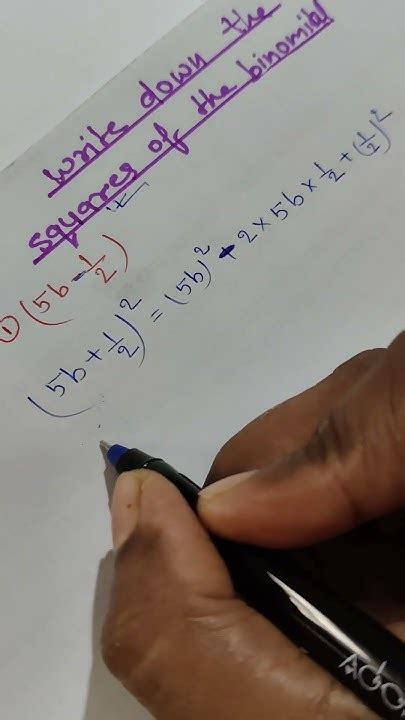 Write down the
squares of the binomial
① (5b - 1/2)
(5b + 1/2)² = (5b)² - 2 × 5b × 1/2 + (1/2)²